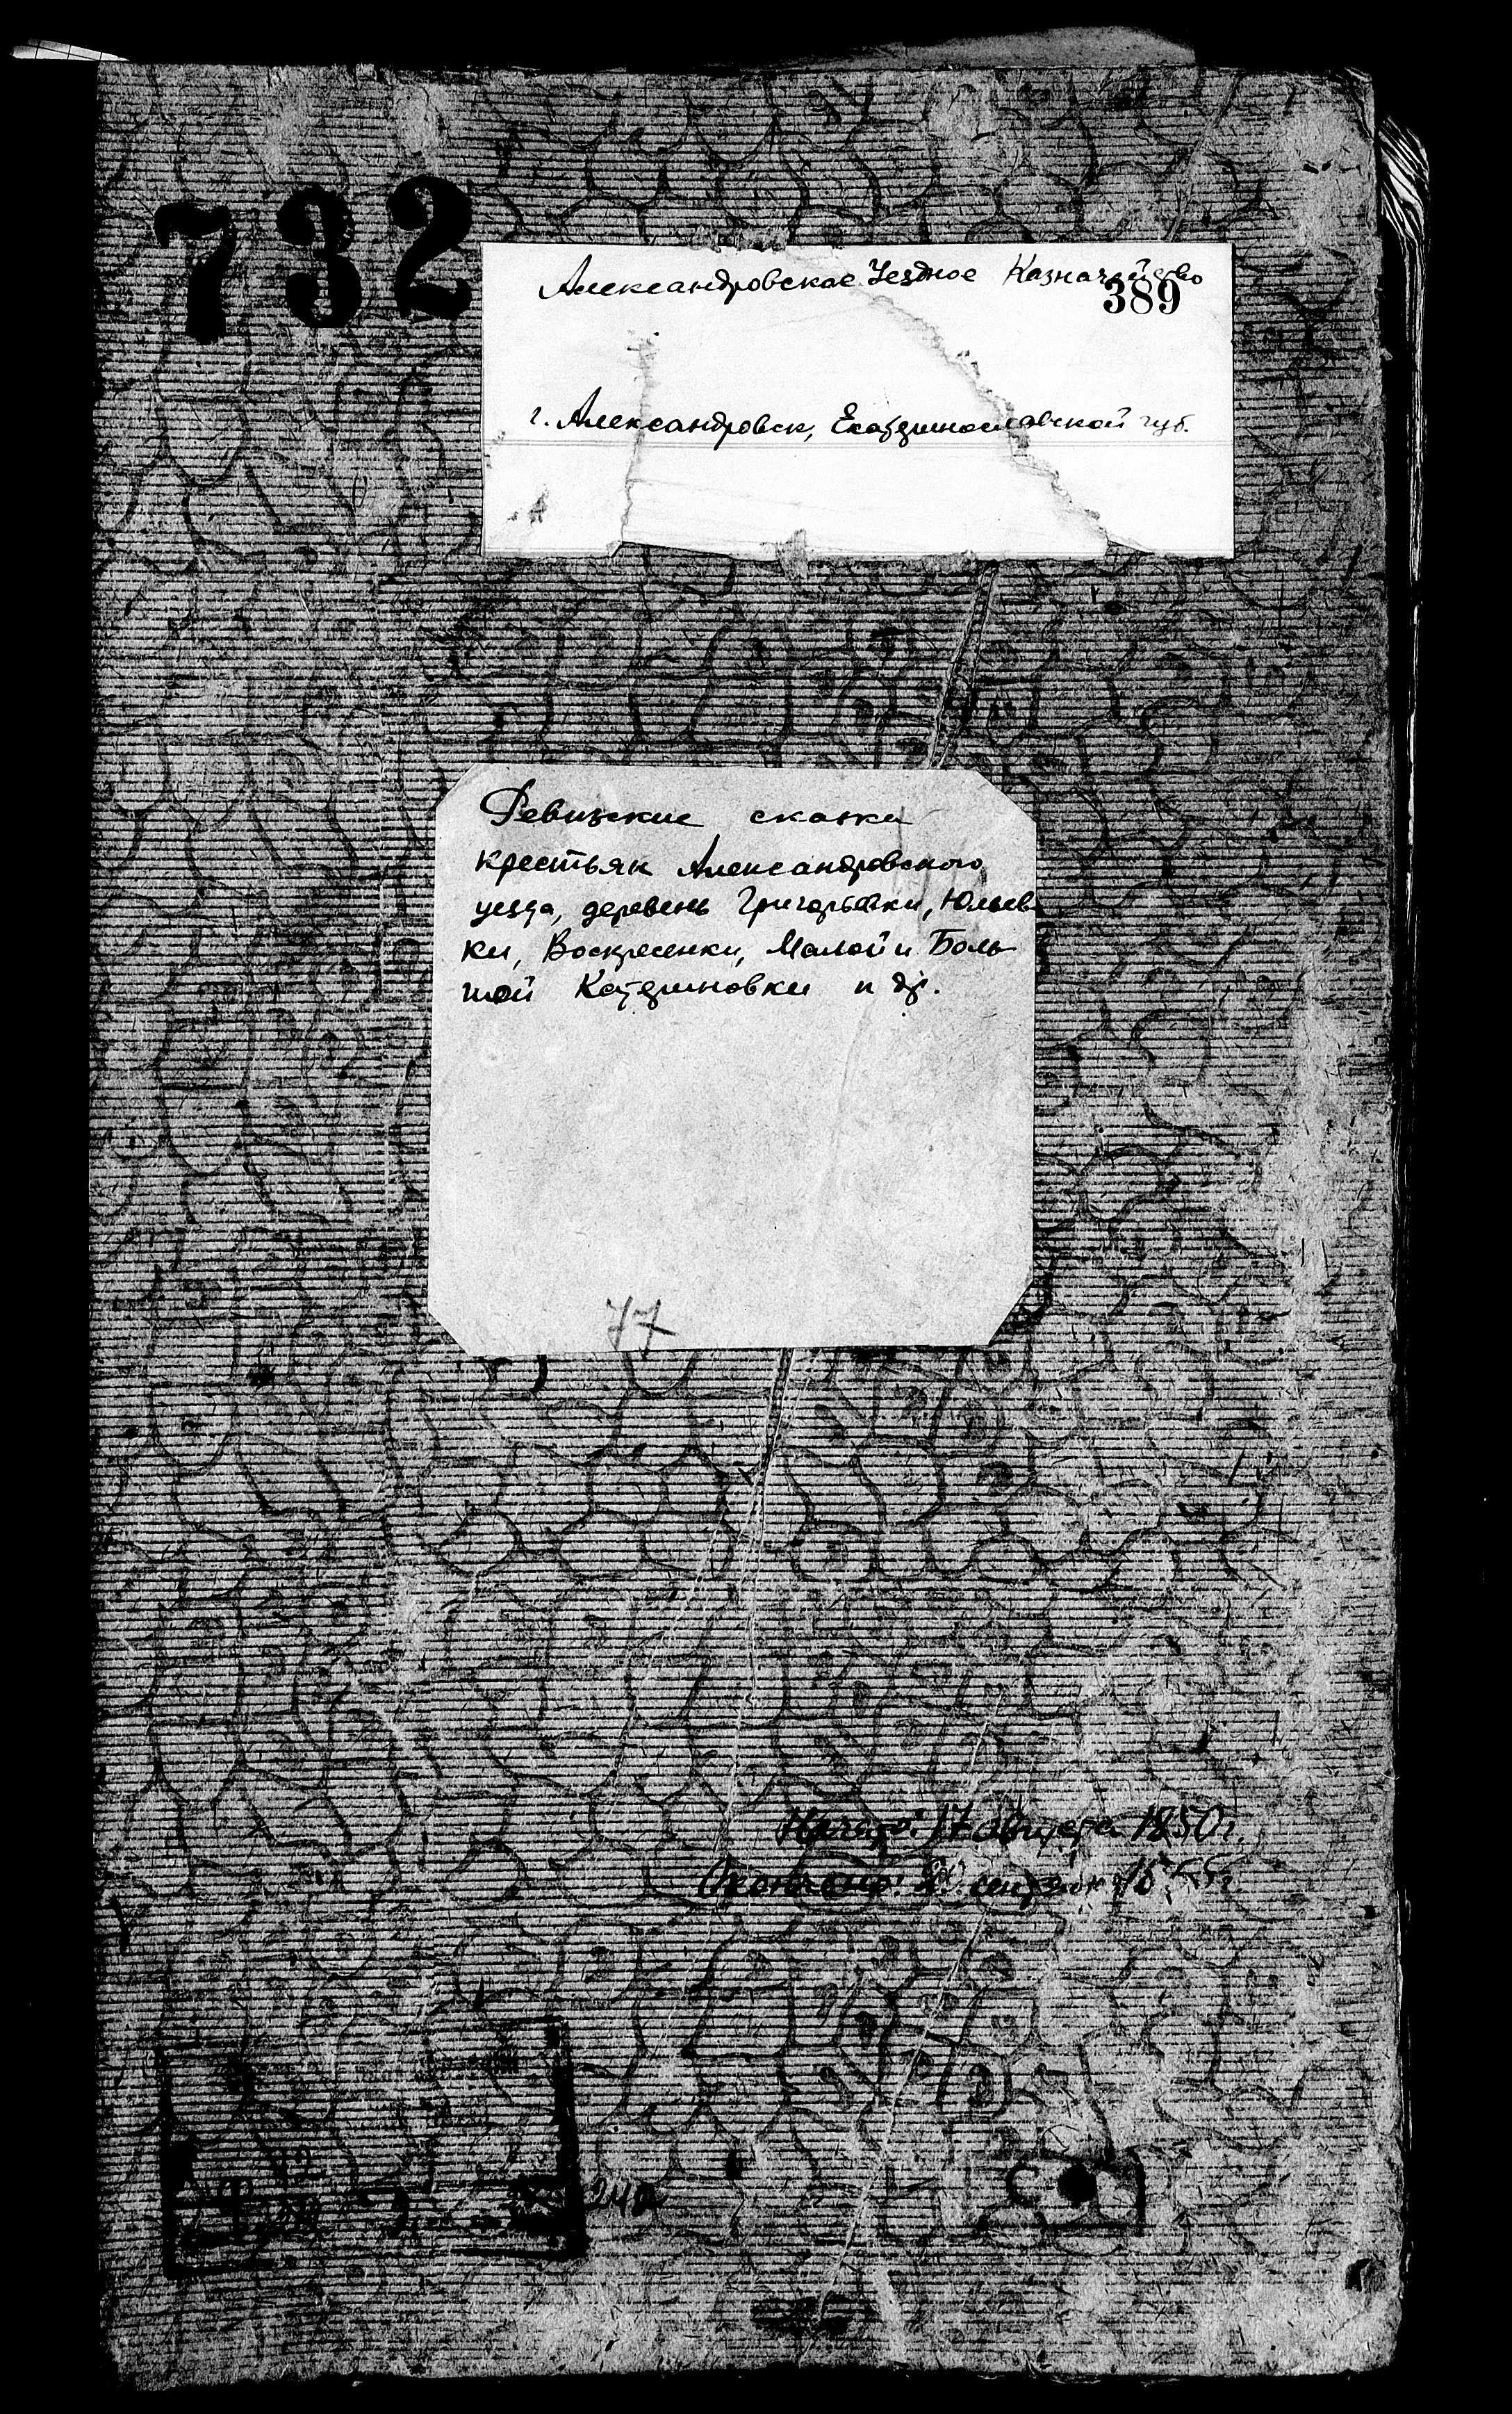 732
Александровское Уездное Казначейство
389
г. Александровск, Екатеринославской губ.
Ревизские сказки
крестьян Александровского
уезда, деревень Григорьевки, Юльев-
ки, Воскресенки, Малой и Боль-
шой Катериновки и др.
77
Начато: 17 августа 1850 г.
Окончено:
240